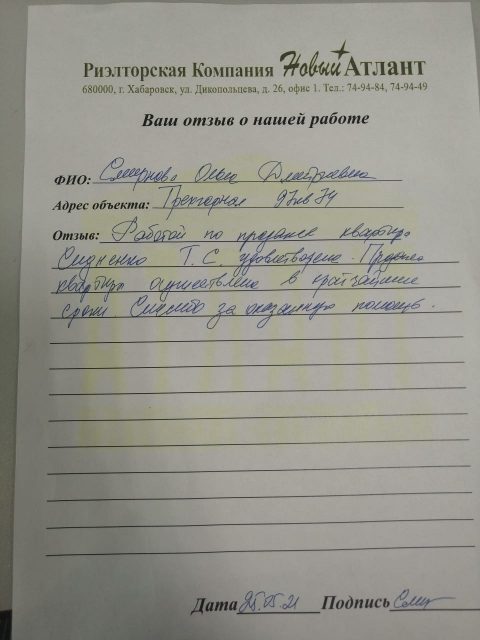 Риэлторская Компания Новый Атлант
680000, г. Хабаровск, ул. Дикопольцева, д. 26, офис 1. Тел.: 74-94-84, 74-94-49
Ваш отзыв о нашей работе
ФИО: Смирнова Ольга Дмитриевна
Адрес объекта: Трехгорная
Отзыв: Работой по продаже квартиры
Т.С. удовлетворена. Продажа
квартиры осуществлена в кратчайшие
сроки. Спасибо за оказанную помощь.
Дата 25.05.21 Подпись